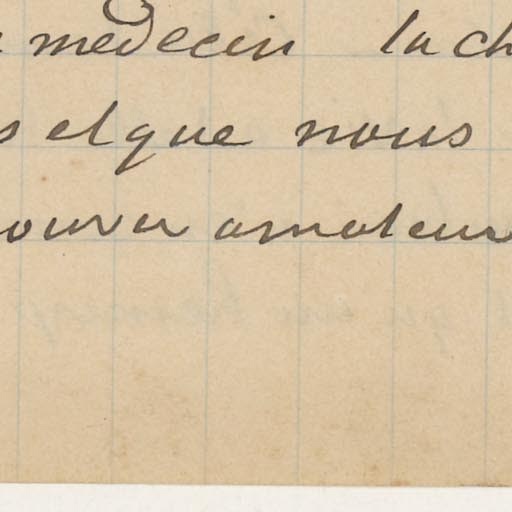 medecin la ch
s et que nous
ouver amateur